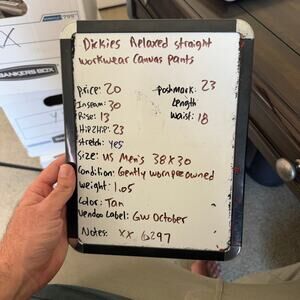 XX
799
BANKERS BOX
Dickies Relaxed straight
workwear Canvas pants
Price: 20
Inseam: 30
Rise: 13
Hip2Hip: 23
Stretch: yes
Poshmark: 23
Length
Waist: 18
Size: US Men's 38x30
Condition: Gently worn preowned
Weight: 1.05
Color: Tan
Vendoo Label: GW October
Notes: XX 6297